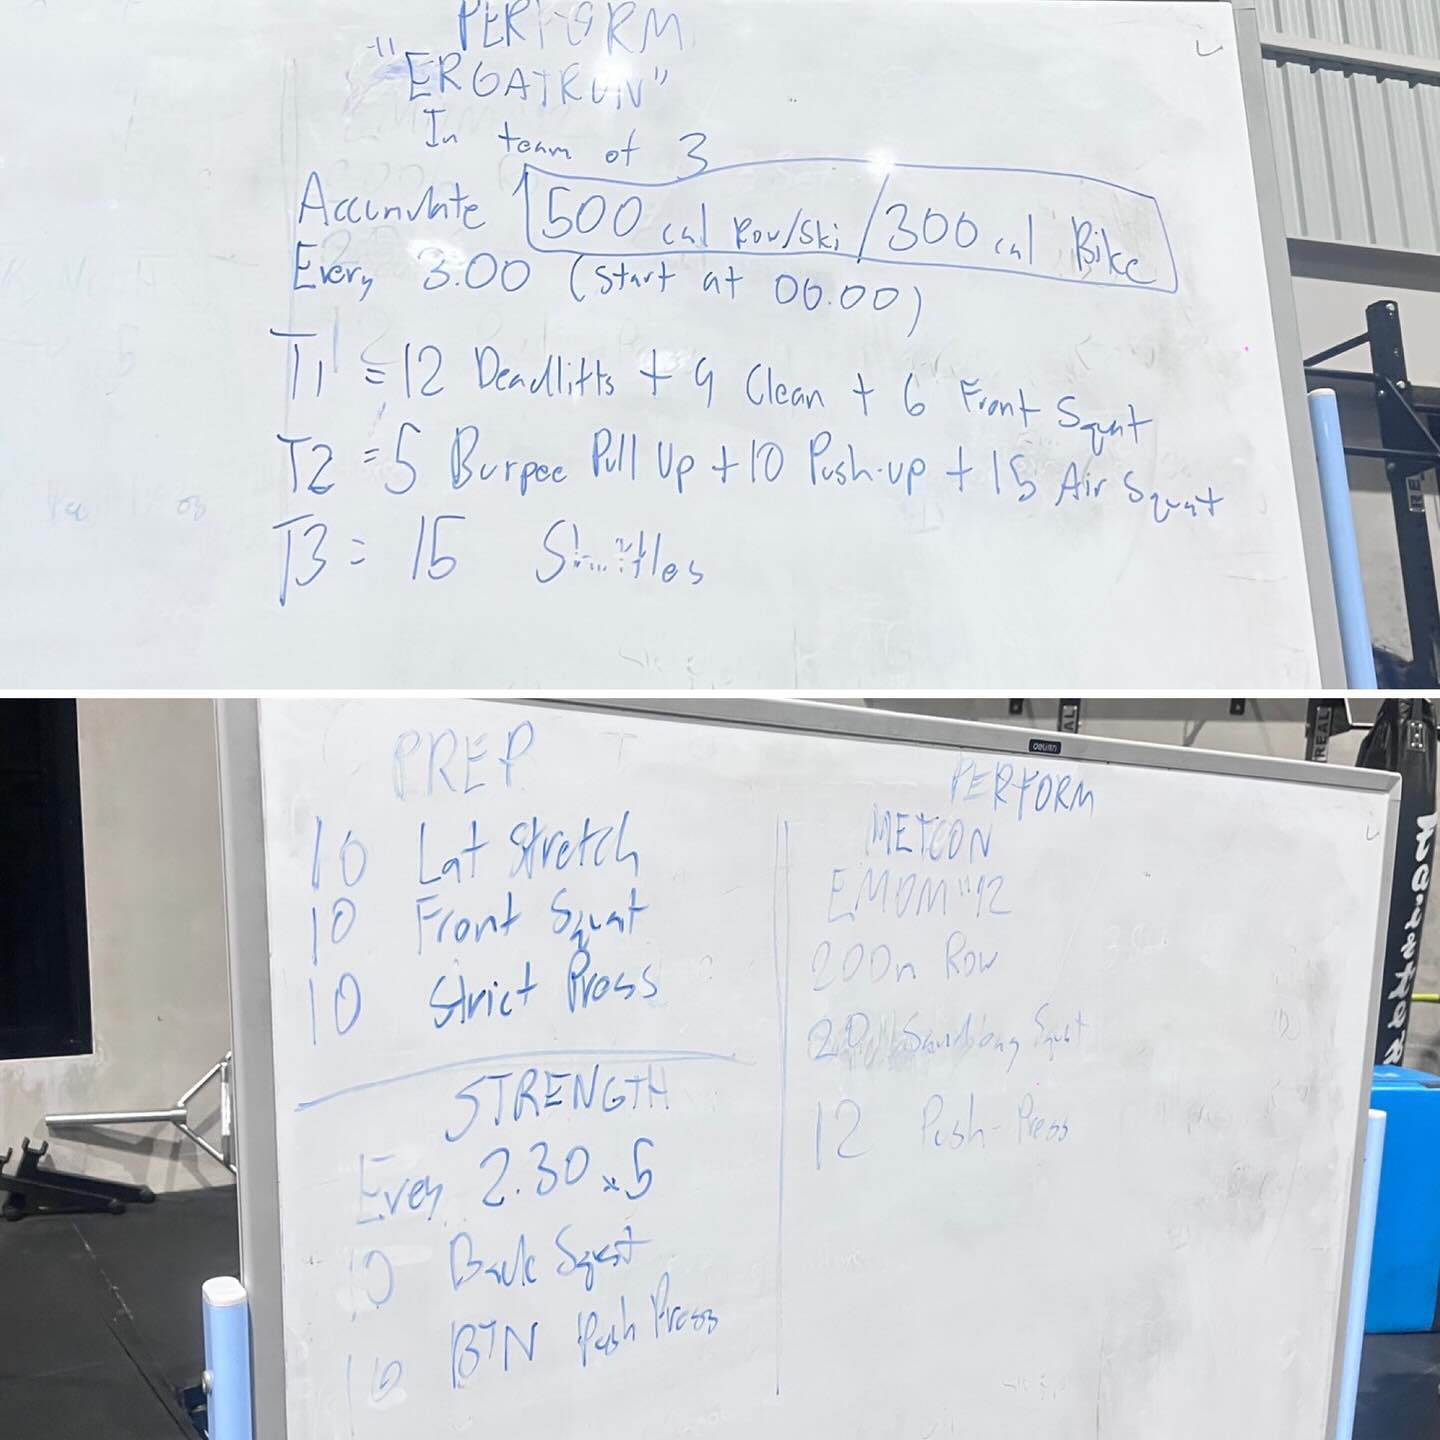 PERFORM
"ERGATRON"
In team of 3
Accumulate 500 cal Row/Ski / 300 cal Bike
Every 3.00 (start at 00.00)
T1 = 12 Deadlifts + 9 Clean + 6 Front Squat
T2 = 5 Burpee Pull Up + 10 Push-up + 15 Air Squat
T3 = 15 Shuttles
PREP
10 Lat Stretch
10 Front Squat
10 Strict Press
STRENGTH
Every 2.30 x 5
10 Back Squat
10 BTN Push Press
PERFORM
METCON
EMOM "12
200m Row
20 Sandbag Squat
12 Push-Press
deli
REAL
REAL